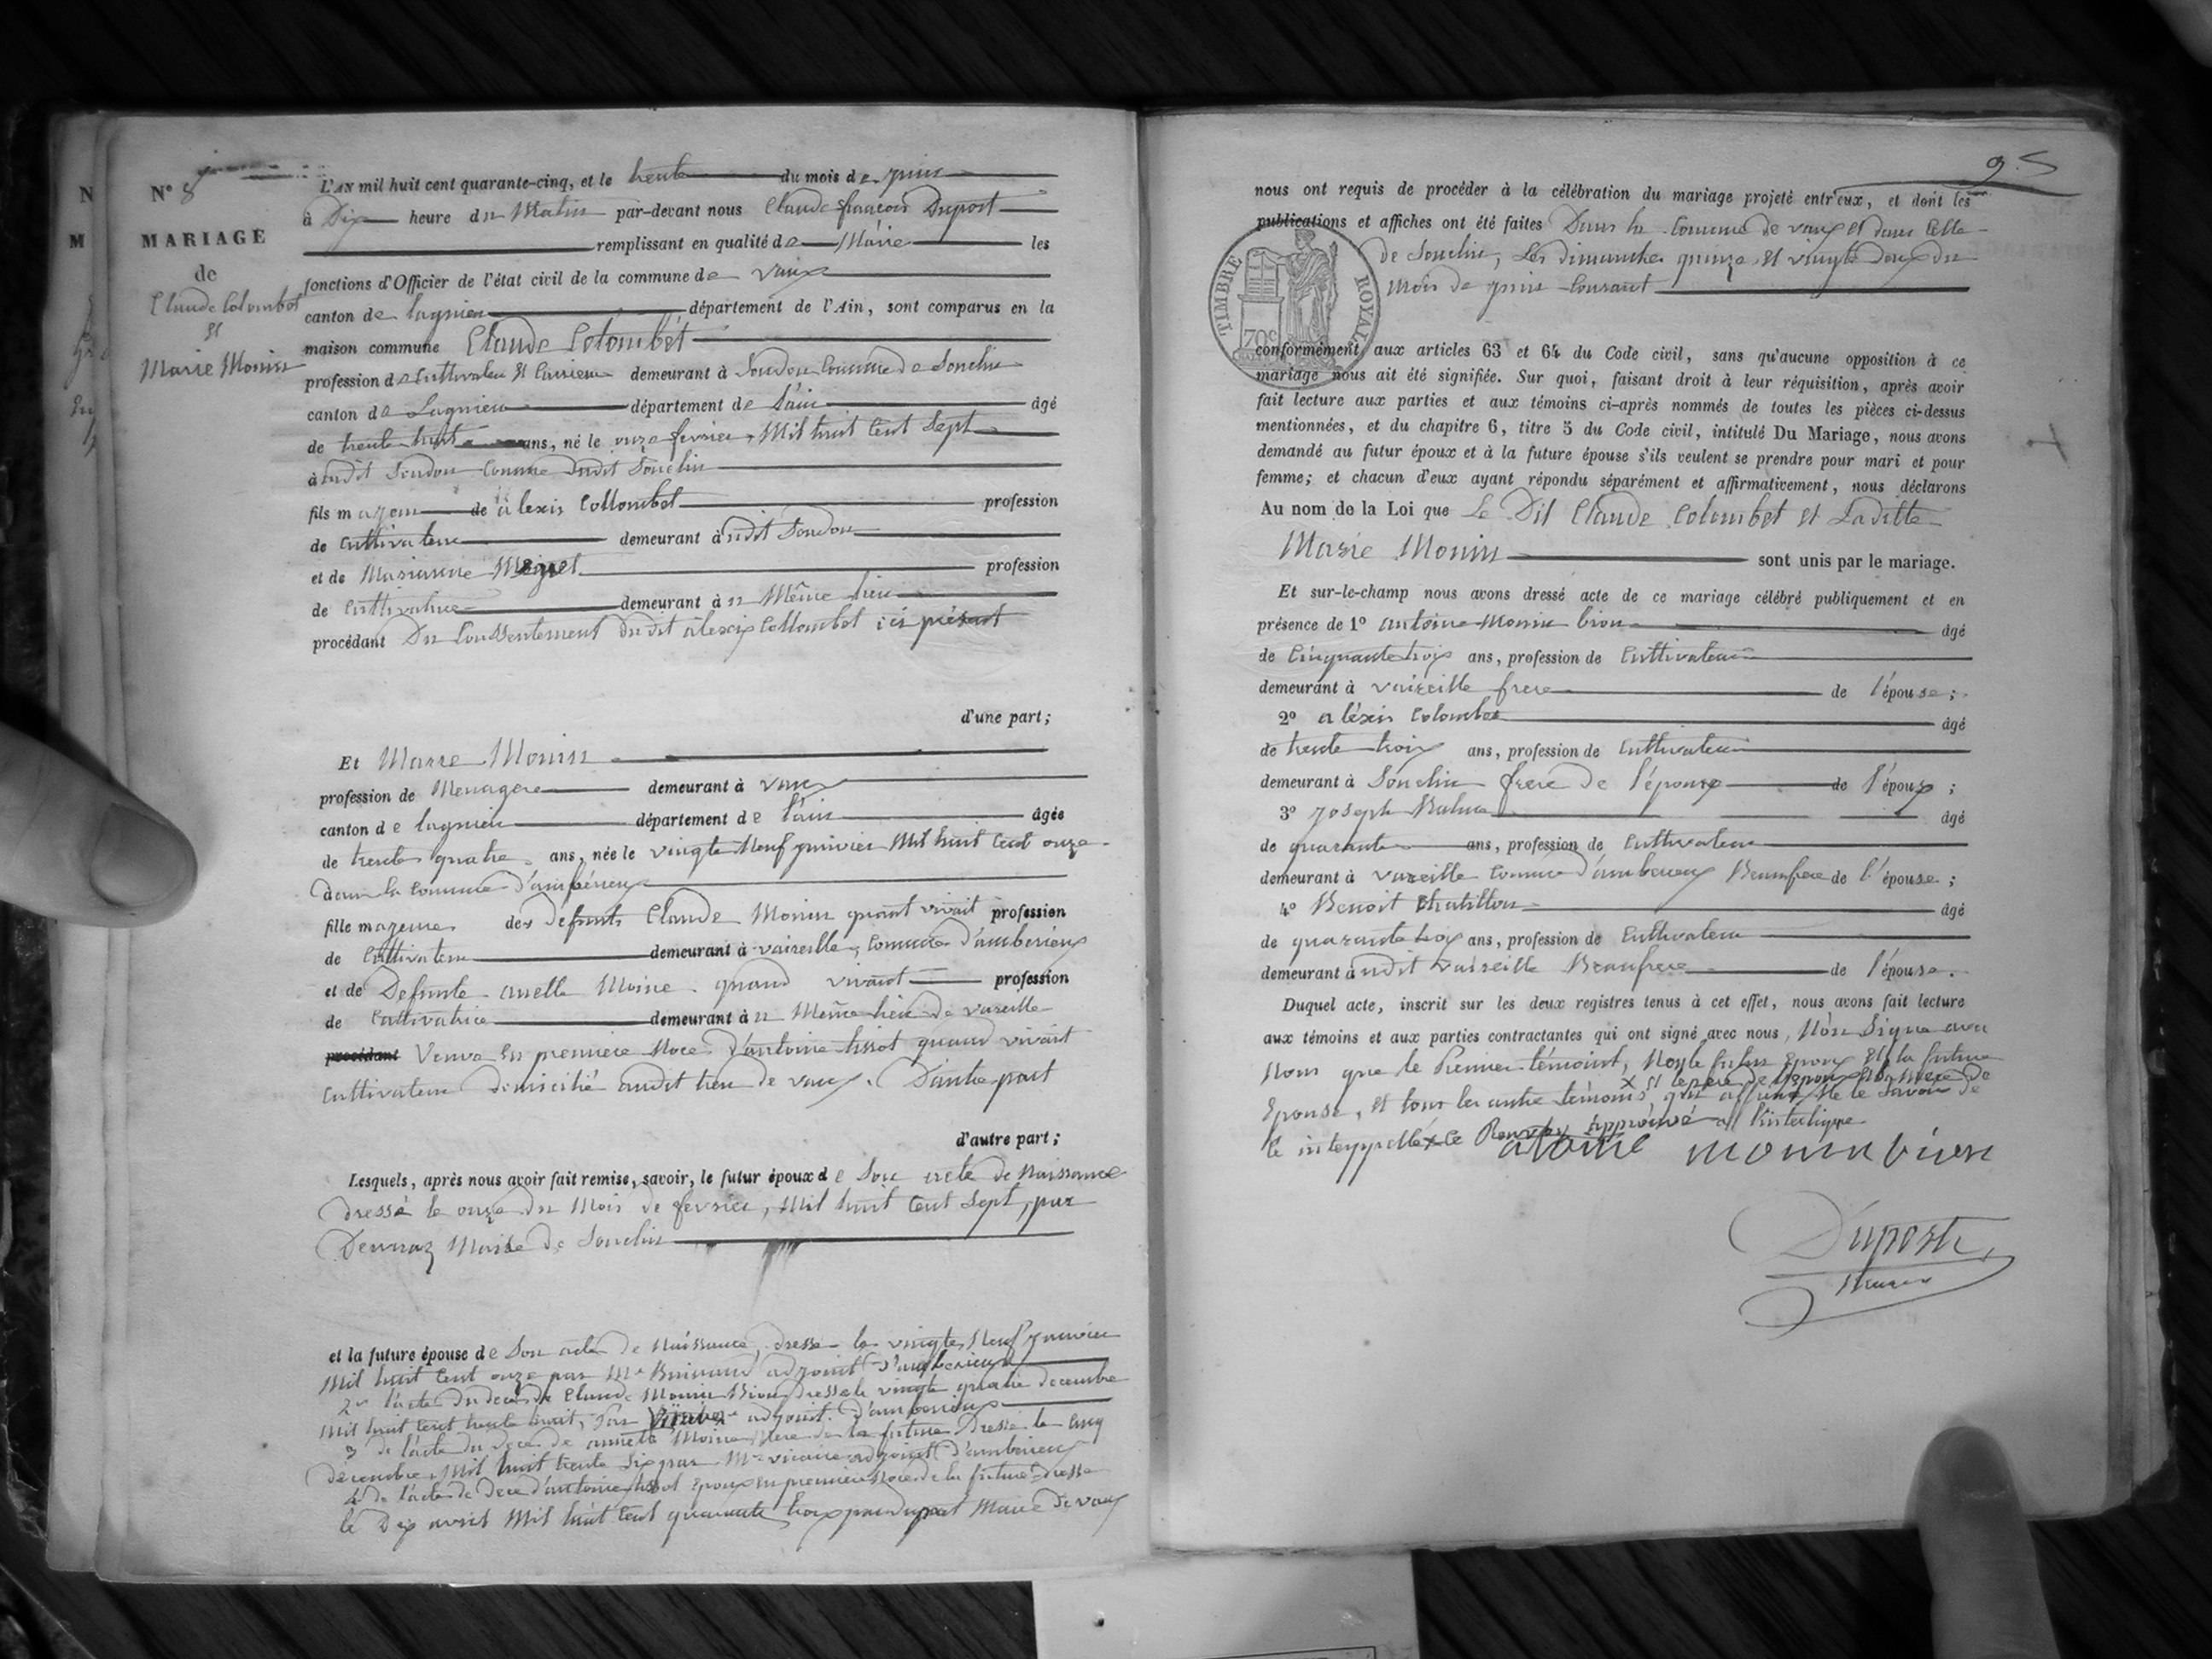 N° 8
MARIAGE
de
Claude Colombet
et
Marie Monin
L'AN mil huit cent quarante-cinq, et le trente du mois de juin
à Dix heure du Matin par-devant nous Claude françois Duport
remplissant en qualité de Maire les
fonctions d'Officier de l'état civil de la commune de vaux
canton de lagnieu département de l'Ain, sont comparus en la
maison commune Claude Colombet
profession de Cultivateur et demeurant à Soudon Commune de Souclin
canton de Lagnieu département de l'ain âgé
de trente huit ans, né le onze fevrier Mil huit Cent Sept
à udit Soudon Comune dudit Souclin
fils majeur de alexis Collombet profession
de Cultivateur demeurant à udit Soudon
et de Marianne profession
de Cultivatrice demeurant à u Même lieu
procédant Du Conssentement dudit alexis Collombet ici présent
d'une part;
Et Marie Monin
profession de Menagere demeurant à vaux
canton de lagnieu département de l'ain âgée
de trente quatre ans, née le vingte Neuf janvier Mil huit Cent onze
dans la Commune d'ambérieux
fille majeure des defunts Claude Monin quant vivait profession
de Cultivateur demeurant à vaireille, Commune d'amberieux
et de Defunte anette Moine quand vivait profession
de Cultivatrice demeurant à u Même lieu de vareille
procédant Veuve En premiere Noce d'antoine tissot quand vivait
Cultivateur domicilié audit lieu de vaux. D'autre part
d'autre part;
Lesquels, après nous avoir fait remise, savoir, le futur époux de Son acte de Naissance
dressé le onze du Mois de fevrier, Mil huit Cent Sept, par
Maire de Souclin
et la future épouse de Son acte de Naissance, dresse le vingte Neuf janvier
Mil huit Cent onze par Mr adjoint d'amberieux
2° l'acte du deces de Claude Monin Bion dresse le vingte quatre decembre
Mil huit Cent trente huit, par adjoint d'amberieux
3 de l'acte du dece de annette Moine Mere de la future Dressé le Cinq
decembre Mil huit trente Six par Mr vicaire adjoint d'amberieux
4° de l'acte de dece d'antoine tissot Epoux en premiere Noce de la future dresse
le Dix avril Mil huit Cent quarante trois par duport Maire de vaux
95
nous ont requis de procéder à la célébration du mariage projeté entr'eux, et dont les
publications et affiches ont été faites Dans la Commune de vaux et dans Celle
de Souclin, Les dimanches quinze et vingte deux du
Mois de juin Courant
TIMBRE ROYAL
70c
conformément aux articles 63 et 64 du Code civil, sans qu'aucune opposition à ce
mariage nous ait été signifiée. Sur quoi, faisant droit à leur réquisition, après avoir
fait lecture aux parties et aux témoins ci-après nommés de toutes les pièces ci-dessus
mentionnées, et du chapitre 6, titre 5 du Code civil, intitulé Du Mariage, nous avons
demandé au futur époux et à la future épouse s'ils veulent se prendre pour mari et pour
femme; et chacun d'eux ayant répondu séparément et affirmativement, nous déclarons
Au nom de la Loi que Le Dit Claude Colombet et Laditte
Marie Monin sont unis par le mariage.
Et sur-le-champ nous avons dressé acte de ce mariage célébré publiquement et en
présence de 1° antoine Monin bion âgé
de Cinquante trois ans, profession de Cultivateur
demeurant à vaireille frere de l'épouse;
2° alexis Colombet âgé
de trente trois ans, profession de Cultivateur
demeurant à Souclin frere de l'époux de l'époux;
3° joseph âgé
de quarante ans, profession de Cultivateur
demeurant à vareille Commune d'amberieux Beaufrere de l'épouse;
4° Benoit Chatillon âgé
de quarante trois ans, profession de Cultivateur
demeurant à udit vaireille Beaufrere de l'épouse.
Duquel acte, inscrit sur les deux registres tenus à cet effet, nous avons fait lecture
aux témoins et aux parties contractantes qui ont signé avec nous, Non Signe avec
Nous que le Premier témoint, Non le futur Epoux et la future
x et le pere de l'Epoux
Epouse, et tous les autre témoins, Ne le Savoir de
le interppellé x Ce Renvoy Approuvé
monin bion
Duport
Maire